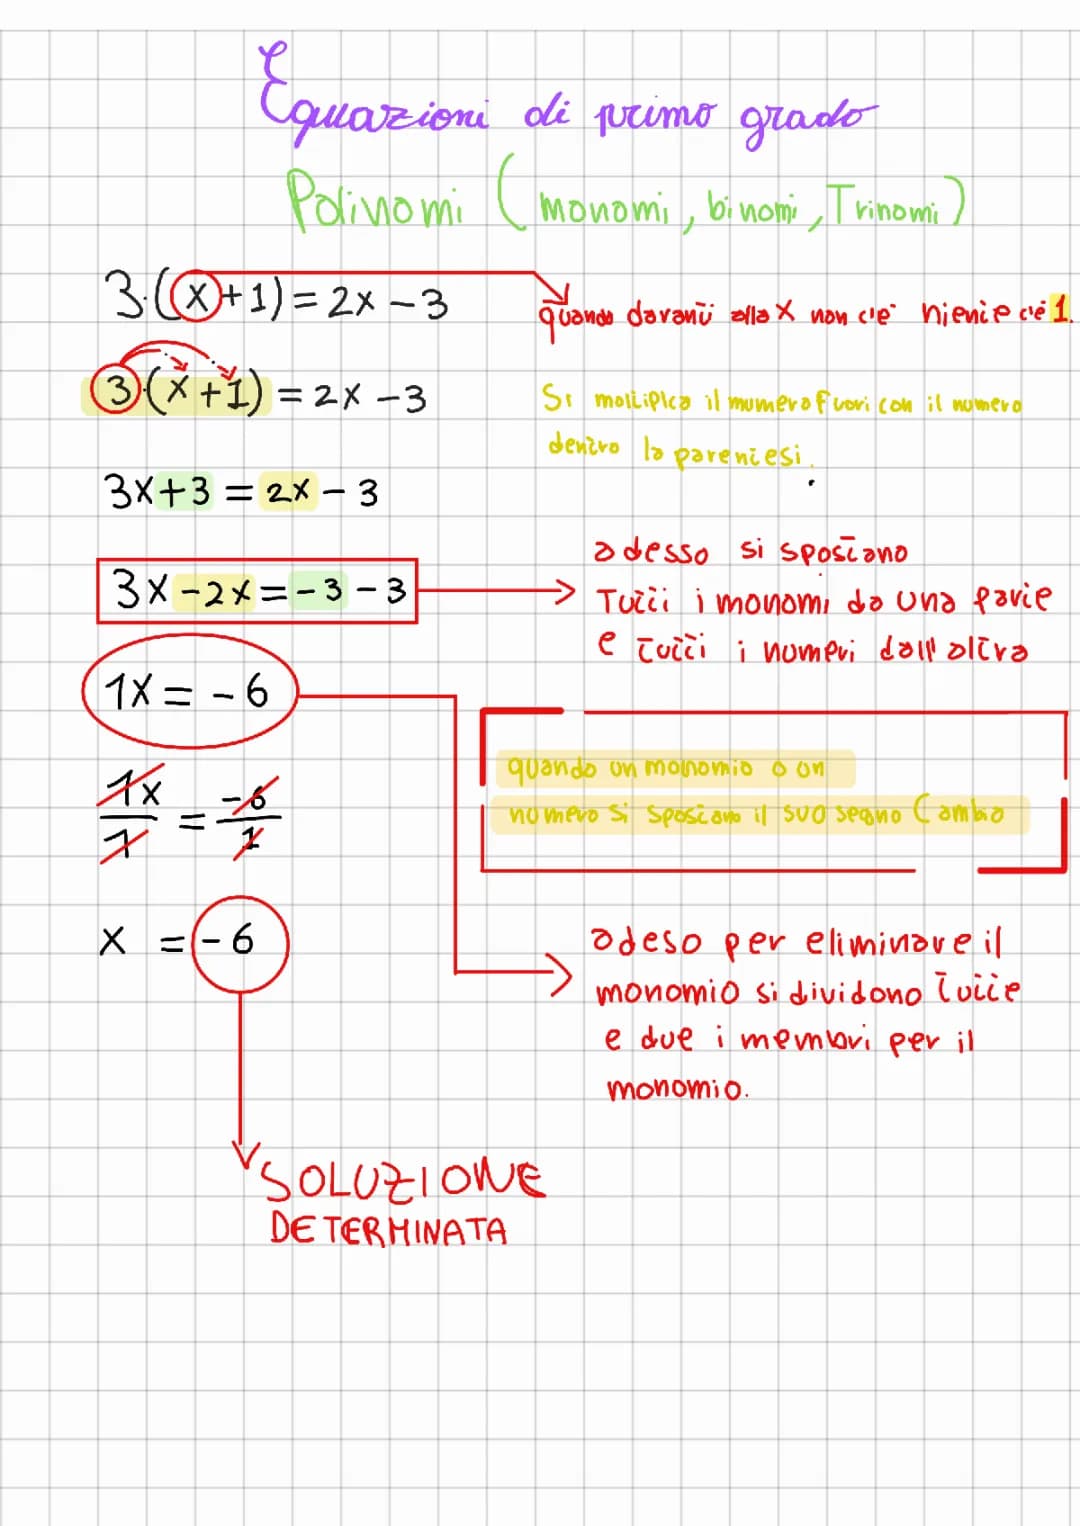 Equazioni di primo grado
Polinomi (monomi, binomi, Trinomi)
3·(x+1)=2x-3
quando davanti alla x non c'e' niente c'é 1.
3·(x+1)=2x-3
Si moltiplica il numero fuori con il numero
dentro la parentesi.
3x+3=2x-3
adesso si spostano
3x-2x=-3-3
Tutti i monomi da una parte
e tutti i numeri dall'altra
1x=-6
quando un monomio o un
numero si spostano il suo segno Cambia
1x/1 = -6/1
x = -6
adeso per eliminare il
monomio si dividono tutte
e due i membri per il
monomio.
SOLUZIONE
DETERMINATA